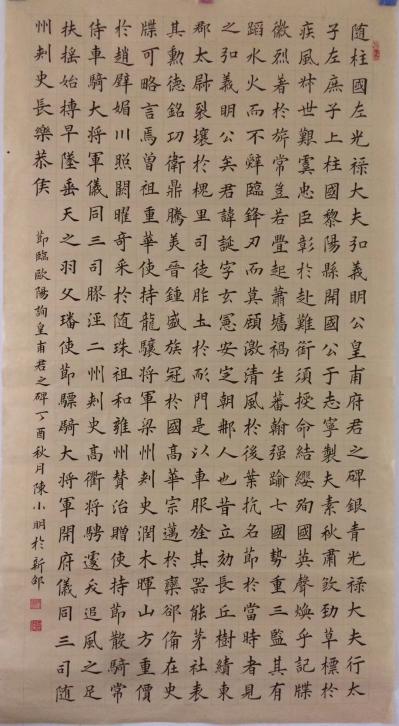 隨柱國左光祿大夫弘義明公皇甫府君之碑銀青光祿大夫行太
子左庶子上柱國黎陽縣開國公于志寧製夫素秋肅致勁草標於
疾風叔世艱虞忠臣彰於赴難銜須授命結纓殉國英聲煥乎記牒
徽烈著於旂常豈若釁起蕭墻禍生蕃翰强踰七國勢重三監其有
蹈水火而不辤臨鋒刃而莫顧激清風於後葉抗名節於當時者見
之弘義明公矣君諱誕字玄憲安定朝那人也昔立効長丘樹績東
郡太尉裂壤於槐里司徒胙土於耏門是以車服旌其器能茅社表
其勲德銘功衛鼎騰美晉鍾盛族冠於國高華宗邁於欒郤備在史
牒可略言焉曾祖重華使持龍驤將軍梁州刾史潤木暉山方重價
於趙璧媚川照闕曜奇采於隨珠祖和雍州賛治贈使持節散騎常
侍車騎大將軍儀同三司膠涇二州刾史高衢將騁遽夭追風之足
扶揺始摶早墜垂天之羽父璠使節驃騎大將軍開府儀同三司隨
州刾史長樂恭侯
節臨歐陽詢皇甫君之碑丁酉秋月陳小朋於新邵